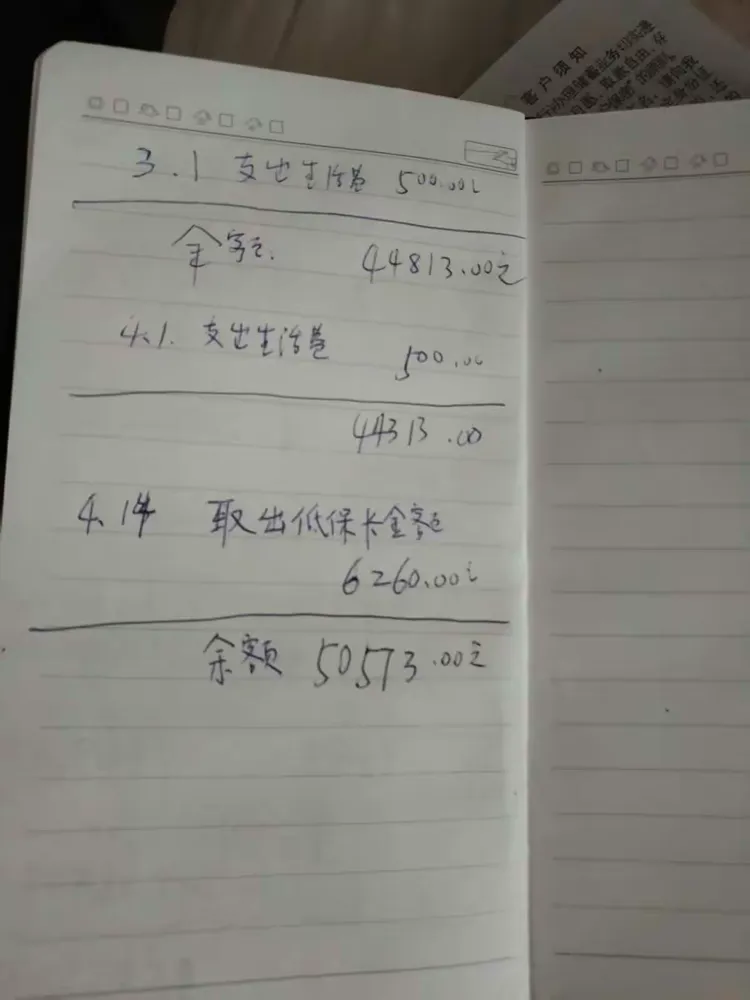 客户须知
3.1 支出生活费 500.00元
余额 44813.00元
4.1. 支出生活费 500.00
44313.00
4.14 取出低保卡金额
6260.00元
余额 50573.00元